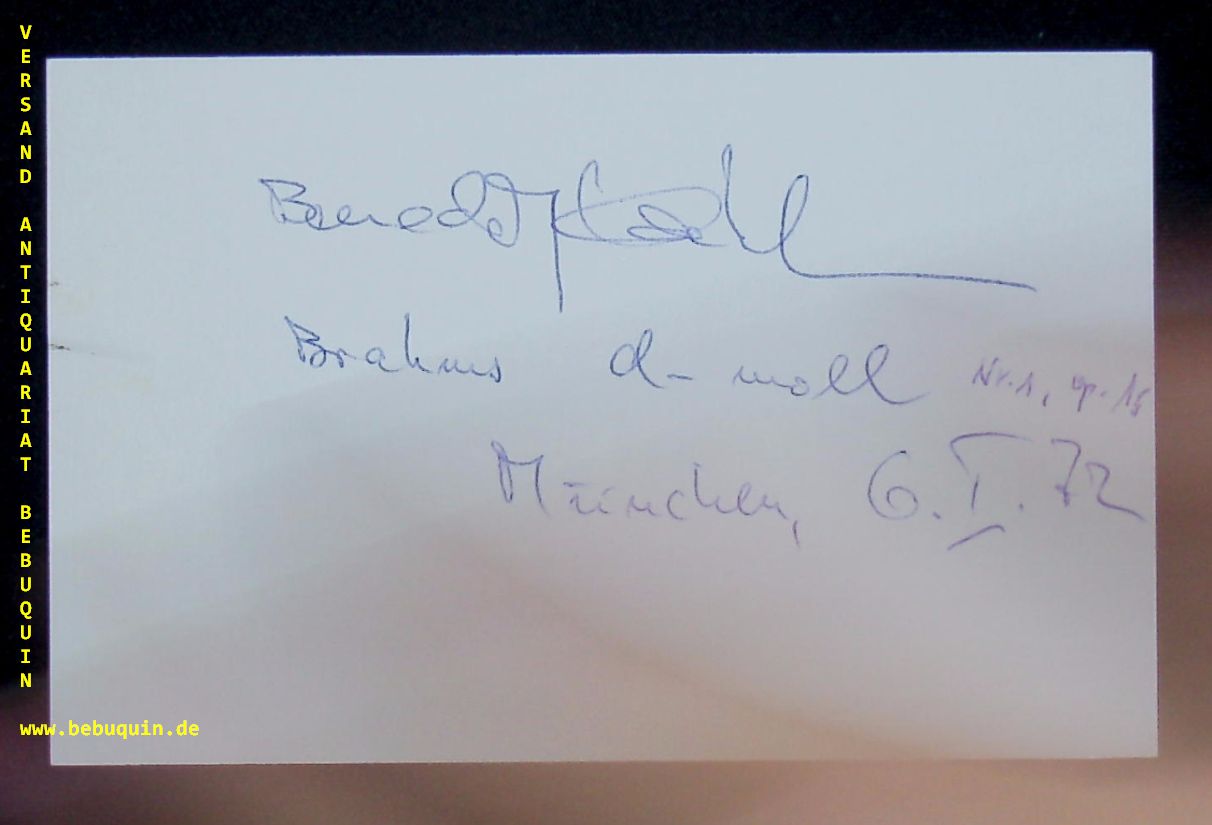 VERSAND ANTIQUARIAT BEBUQUIN
www.bebuquin.de
Benedikt Koehl
Brahms d-moll Nr. 1, op. 15
München, 6. I. 72